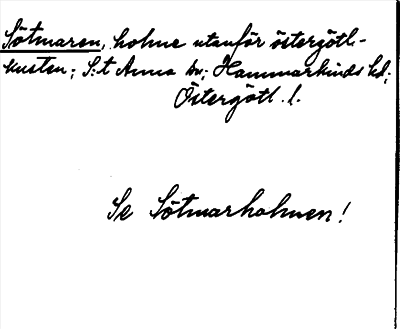 Sötmaren, holme utanför östergötl.-
kusten; S:t Anna sn; Hammarkinds hd;
Östergötl. l.
Se Sötmarholmen!